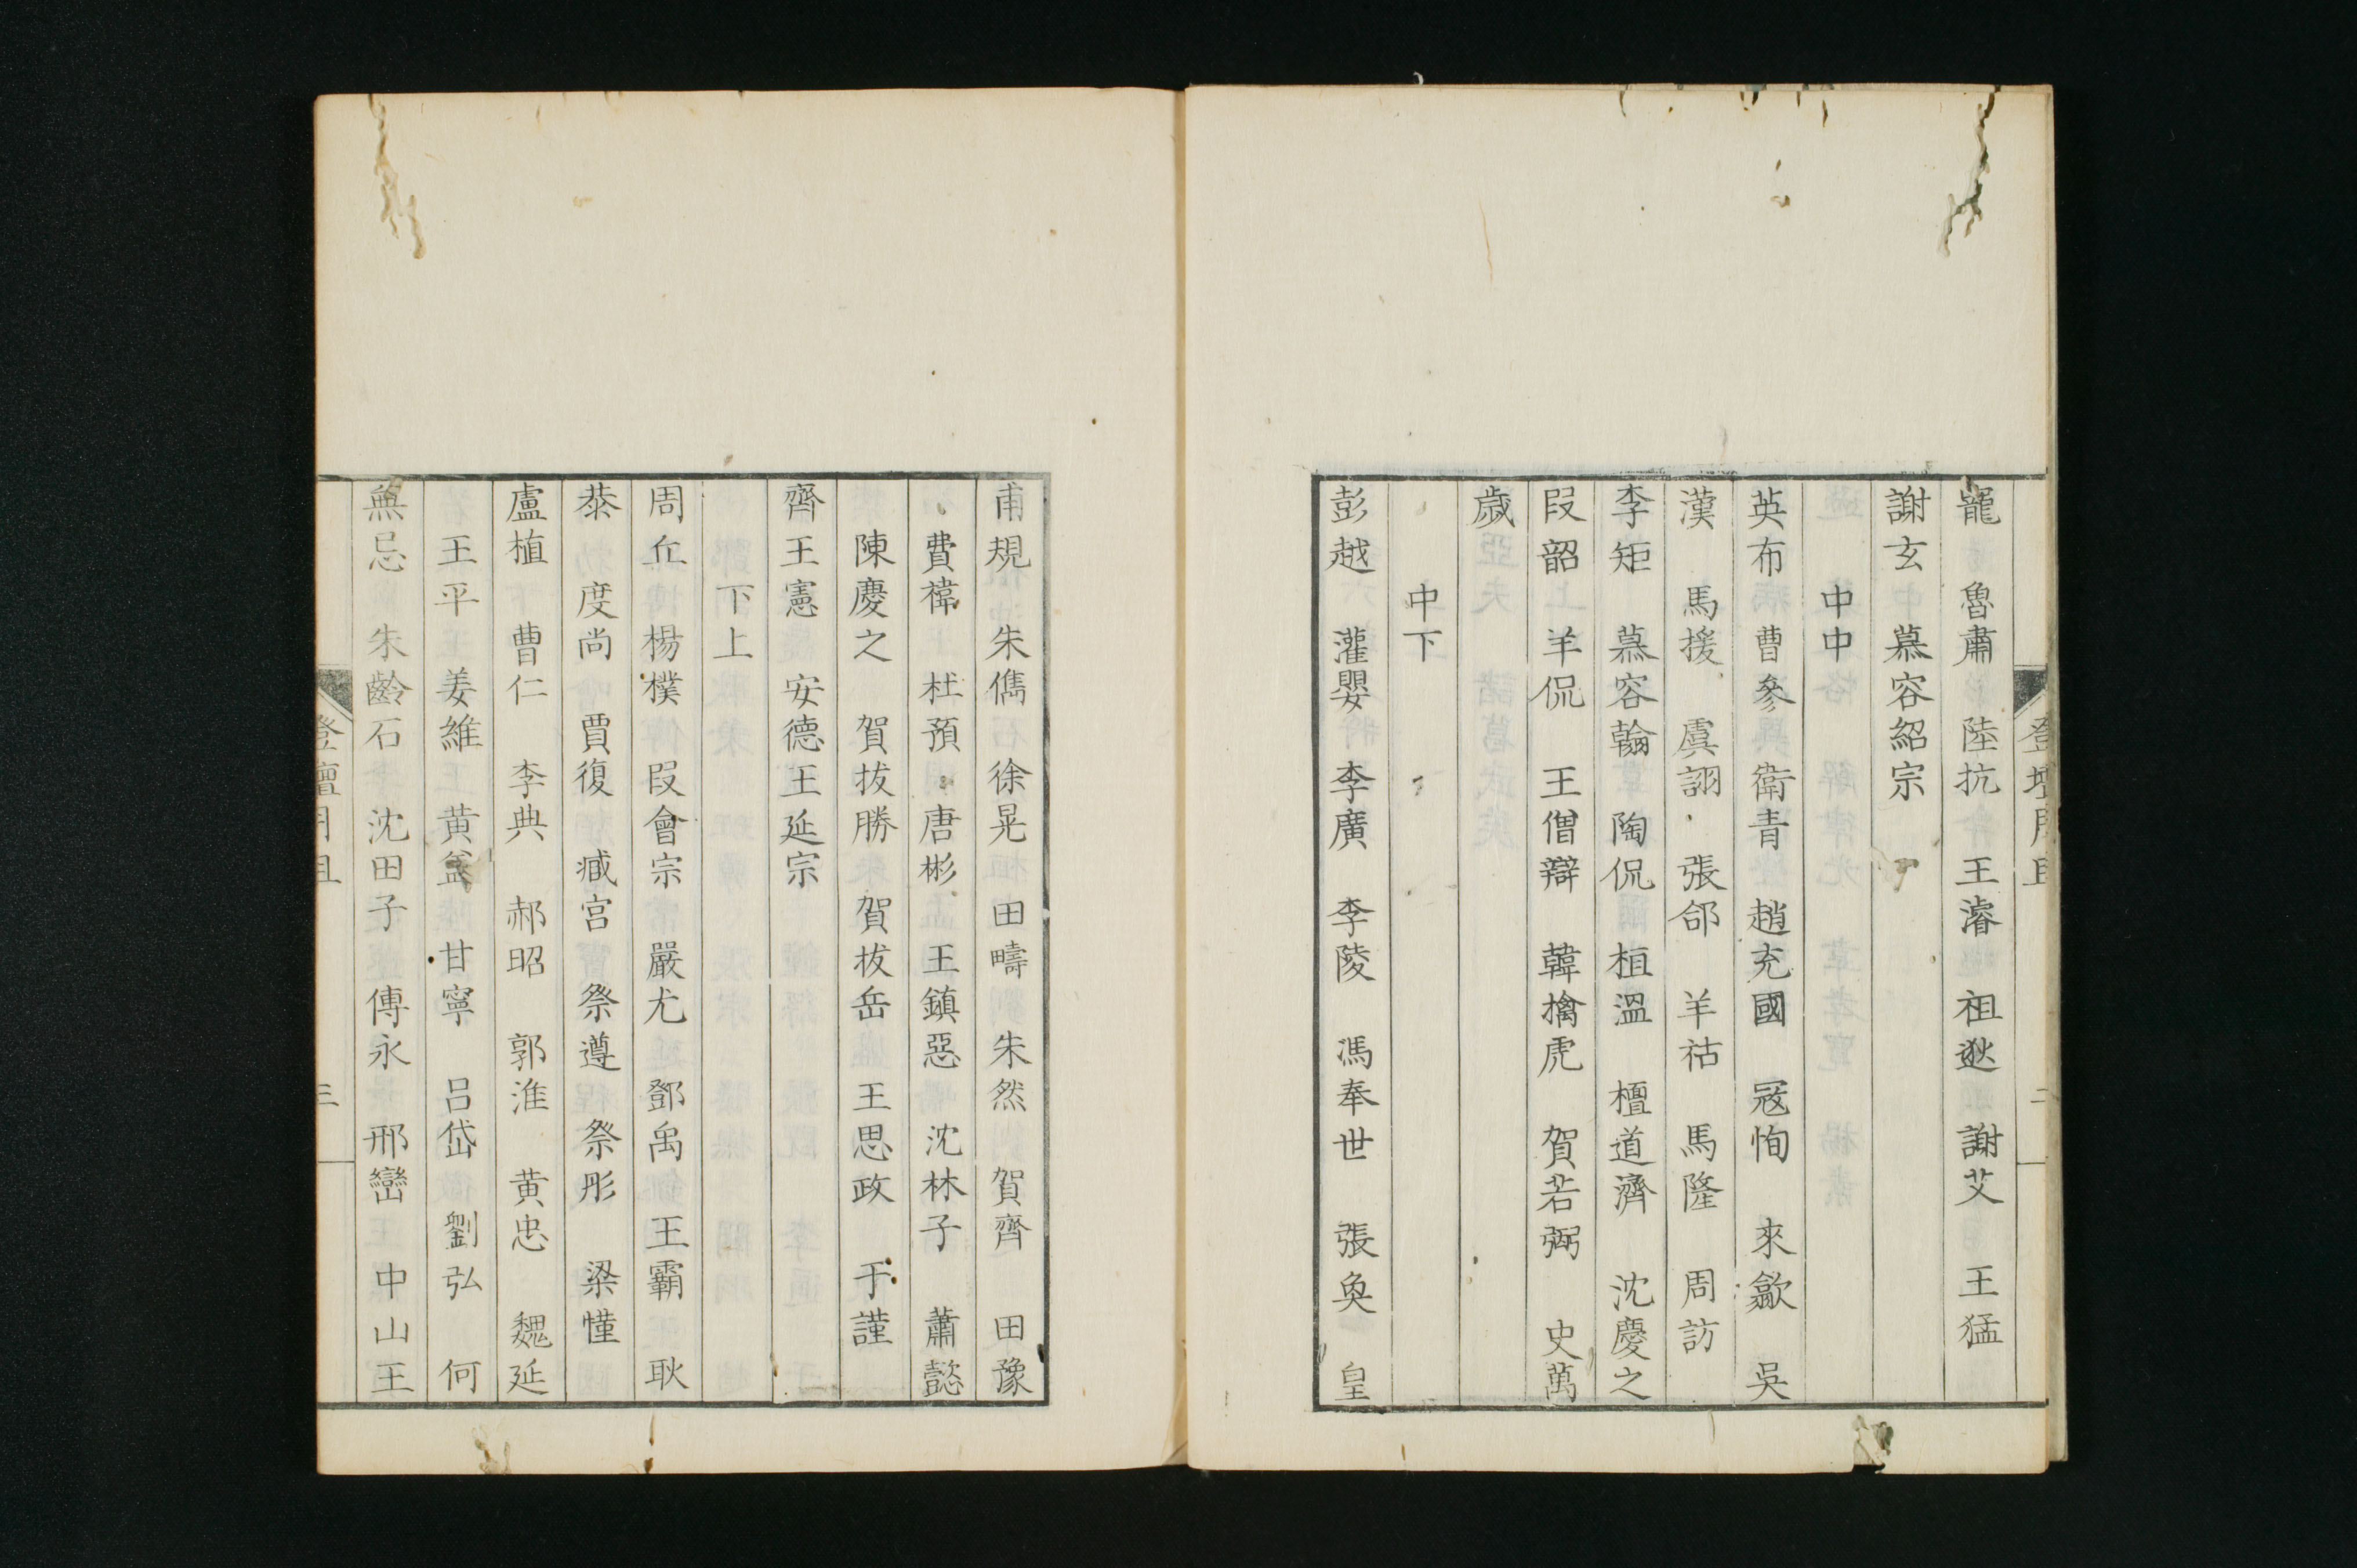 登壇
二
龍 魯肅 陸抗 王濬 祖逖 謝艾 王猛
謝玄 慕容紹宗
中中
英布 曹參 衛青 趙充國 冦恂 來歙 吳
漢 馬援 虞詡 張郃 羊祜 馬隆 周訪
李矩 慕容翰 陶侃 桓溫 檀道濟 沈慶之
段韶 羊侃 王僧辯 韓擒虎 賀若弼 史萬
歲
中下
彭越 灌嬰 李廣 李陵 馮奉世 張奐 皇
甫規 朱儁 徐晃 田疇 朱然 賀齊 田豫
費禕 杜預 唐彬 王鎮惡 沈林子 蕭懿
陳慶之 賀拔勝 賀拔岳 王思政 于謹
齊王憲 安德王延宗
下上
周丘 楊樸 段會宗 嚴尤 鄧禹 王霸 耿
恭 度尚 賈復 臧宮 祭遵 祭彤 梁慬
盧植 曹仁 李典 郝昭 郭淮 黄忠 魏延
王平 姜維 黄盖 甘寧 呂岱 劉弘 何
無忌 朱齡石 沈田子 傅永 邢巒 中山王
登壇
三